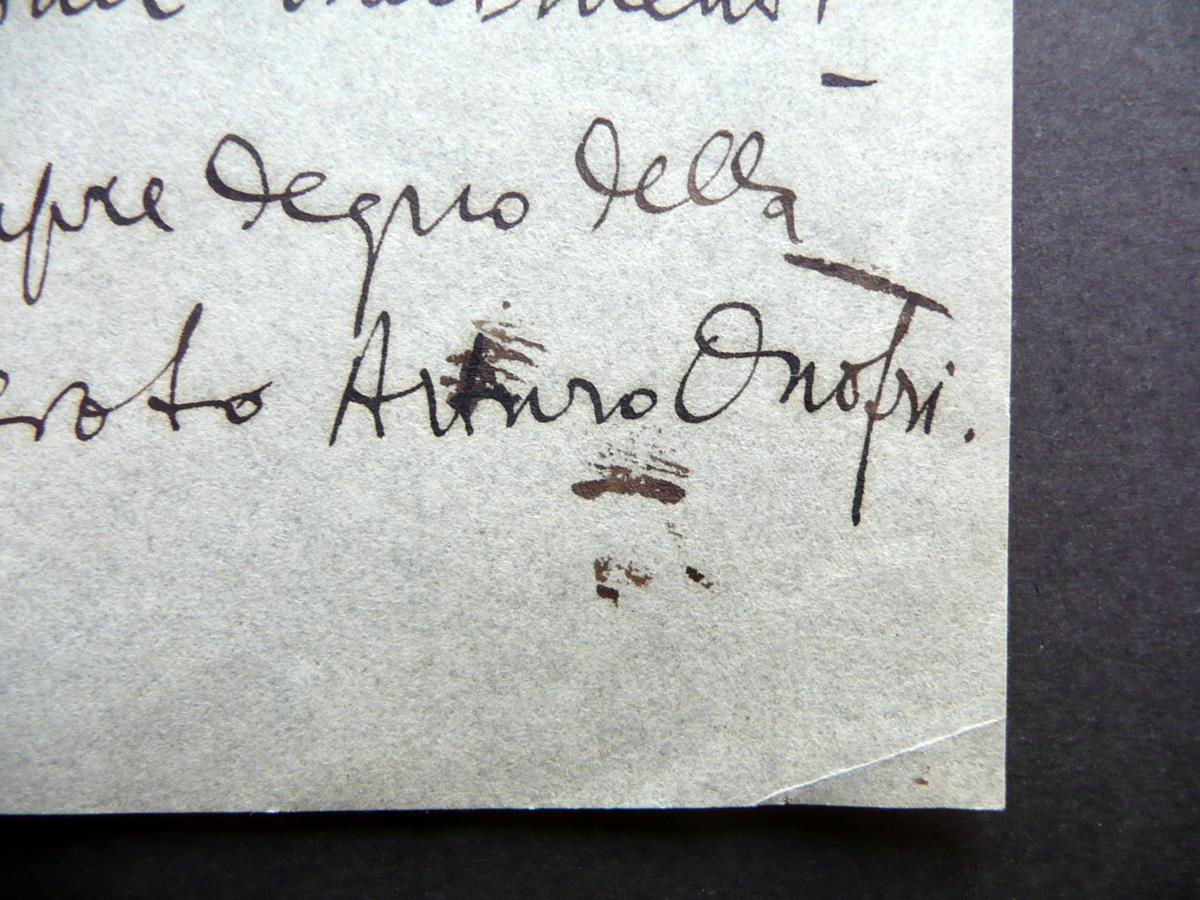 mpre degno della
eroto Arturo Onofri.